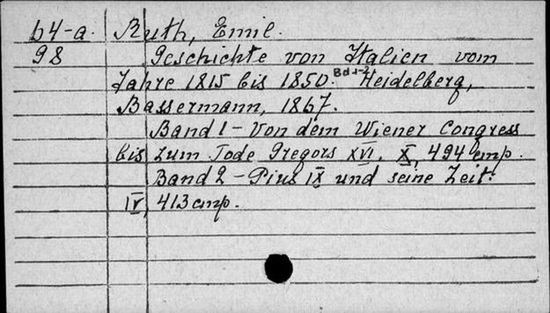 64-a. Ruth, Emil.
98 Geschichte von Italien vom
Jahre 1815 bis 1850. Bd 1-2 Heidelberg,
Bassermann, 1867.
Band 1 - Von dem Wiener Congress
bis zum Tode Gregors XVI. X, 494 стр.
Band 2 - Pius IX und seine Zeit.
IV, 413 стр.